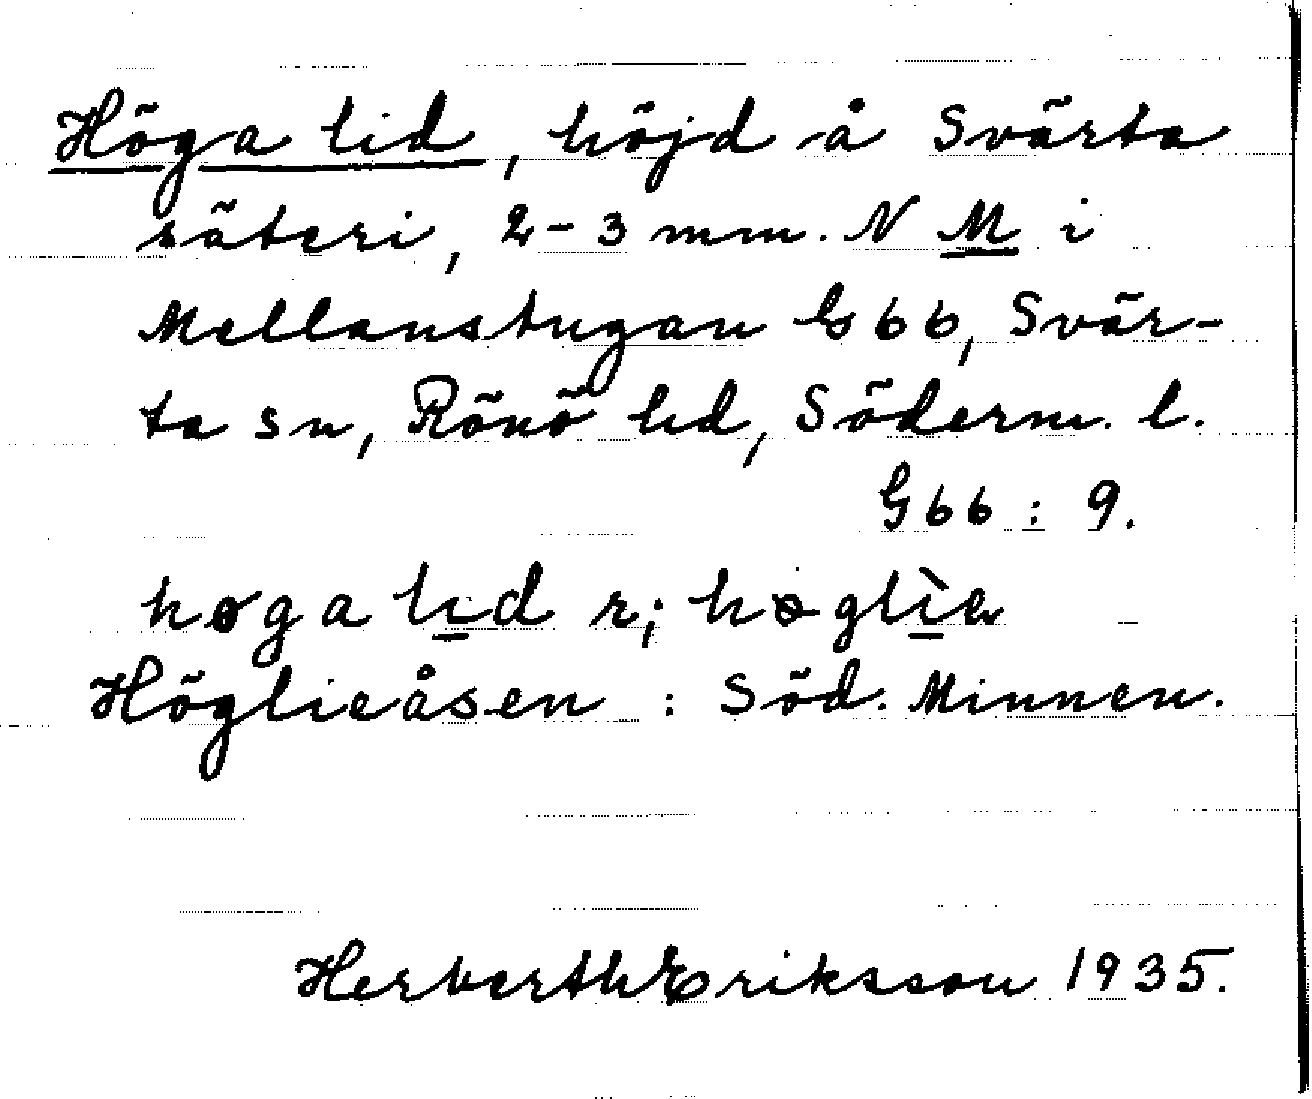 Höga lid, höjd å Svärta
säteri, 2-3 mm. N M i
Mellanstugan G66, Svär-
ta sn, Rönö hd, Söderm. l.
G66: 9.
høga lid r; høglìa
Höglieåsen: Söd. Minnen.
Herberth Eriksson 1935.